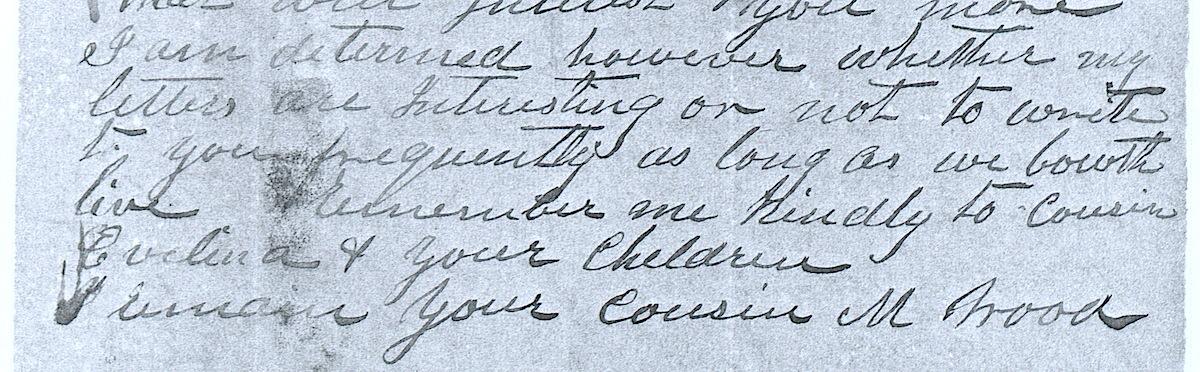 that will interest you more
I am determed however whether my
letters are Interesting or not to write
to you frequently as long as we bowth
live Remember me Kindly to Cousin
Evelina & your Children
I remain your Cousin M Wood